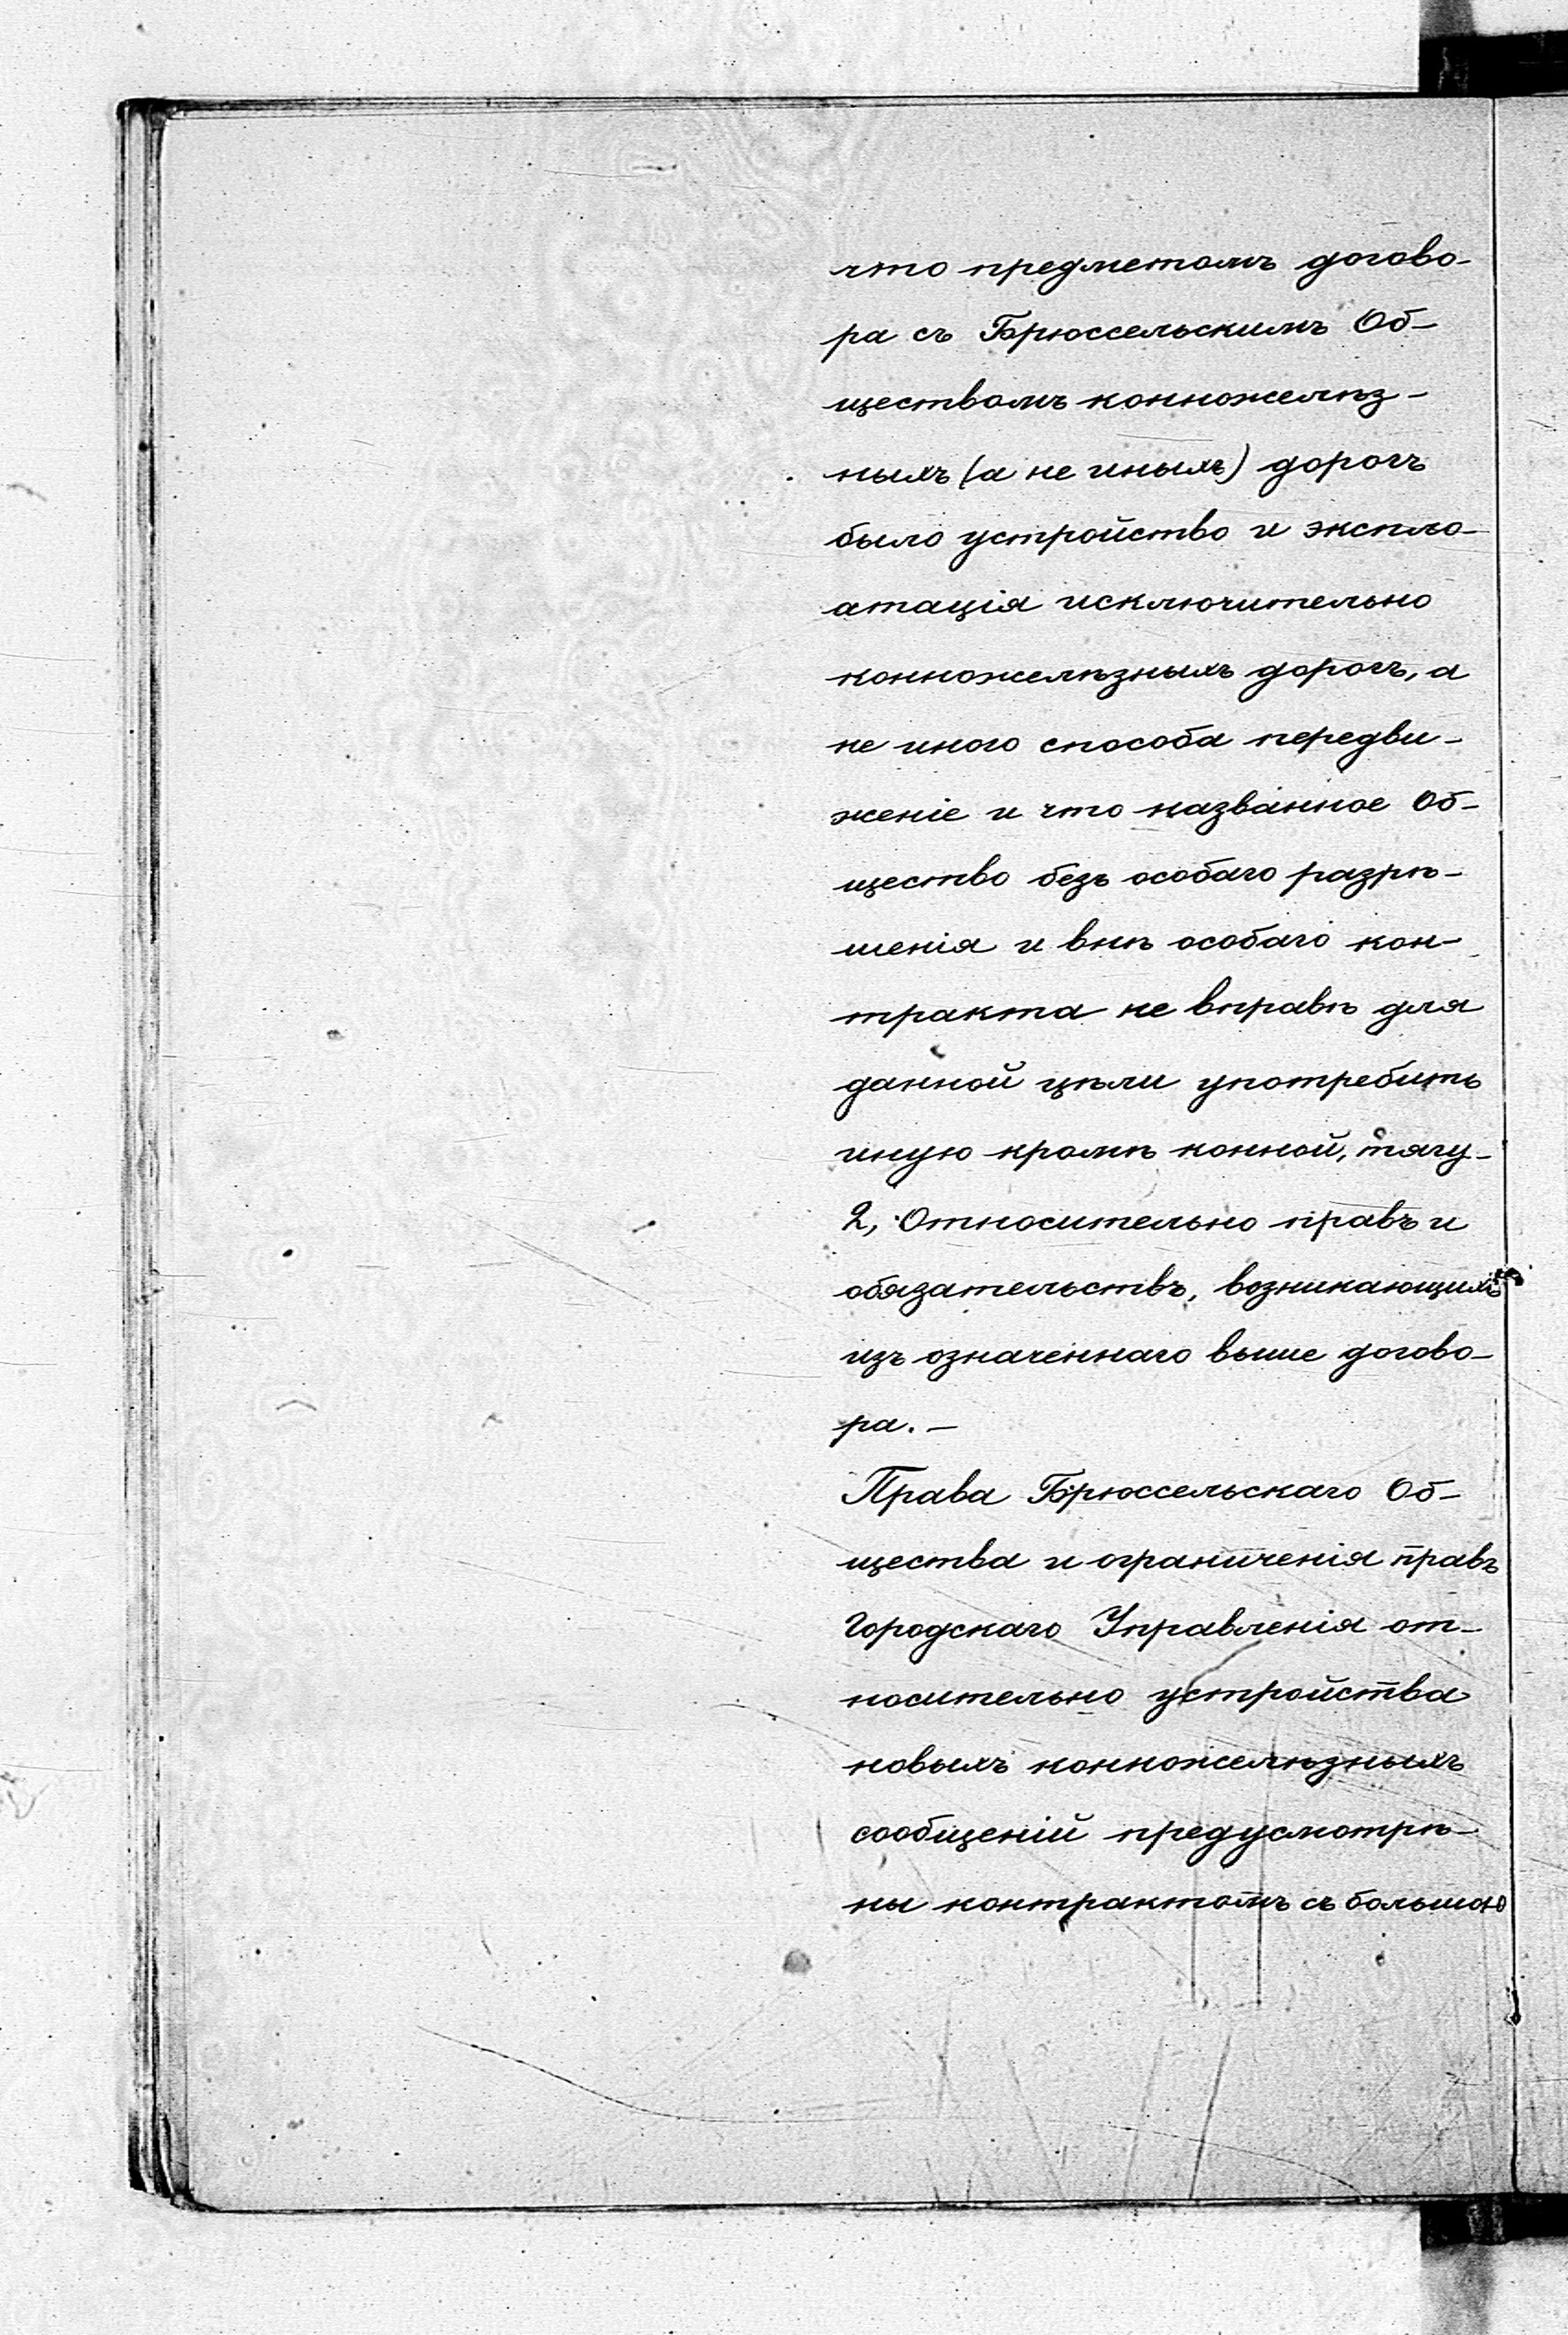 что предметомъ догово-
ра съ Брюссельскимъ Об-
ществомъ конножелѣз-
ныхъ (а не иныхъ) дорогъ
было устройство и эксплo-
атація исключительно
конножелѣзныхъ дорогъ, а
не иного способа передви-
женіе и что названное Об-
щество безъ особаго разрѣ-
шенія и внѣ особаго кон-
тракта не вправѣ для
данной цѣли употребить
иную кромѣ конной, тягу-
2, Относительно правъ и
обязательствъ, возникающихъ
изъ означеннаго выше догово-
ра. –
Права Брюссельскаго Об-
щества и ограниченія правъ
Городскаго Управленія от-
носительно устройства
новыхъ конножелѣзныхъ
сообщеній предусмотрѣ-
ны контрактомъ съ большою